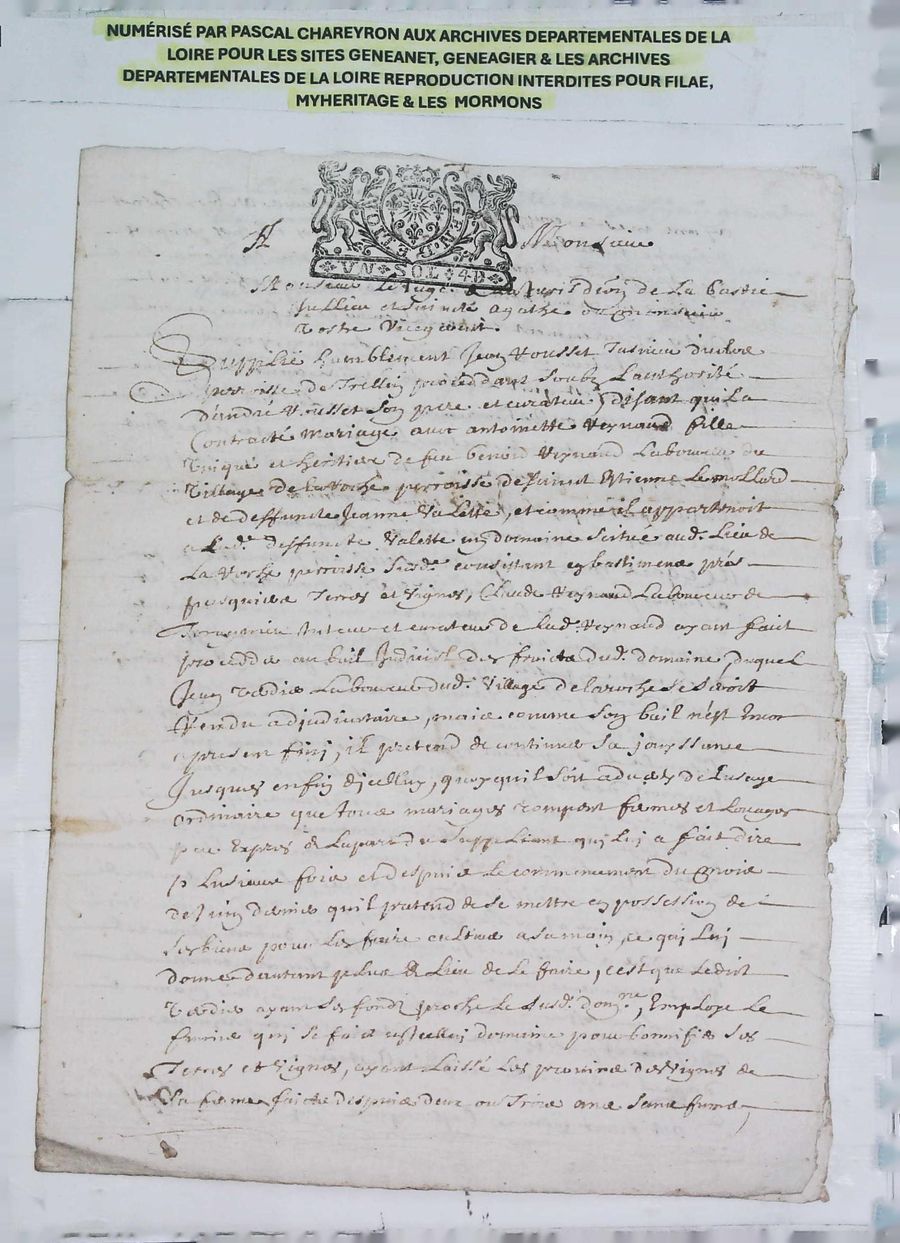 NUMÉRISÉ PAR PASCAL CHAREYRON AUX ARCHIVES DEPARTEMENTALES DE LA
LOIRE POUR LES SITES GENEANET, GENEAGIER & LES ARCHIVES
DEPARTEMENTALES DE LA LOIRE REPRODUCTION INTERDITES POUR FILAE,
MYHERITAGE & LES MORMONS
A Monsieur
GEND ETION
VN SOL 4D
Monsieur Le Juge de La Bastie
Jullieu et Saincte Agathe ou Monsieur
Vostre Vicegerent
Supplie humblement Jean Rousset
perroisse de Trellin proceddant soubz Lauthorité
D'andré Rousset son pere et curateur, disant qu'il a
Contracté Mariage avec antoinette Reynaud fille
Unique et heritiere de feu benoid Reynaud Laboureur du
Village de la Roche perroisse de sainct Estienne Le mollard
et de deffuncte Jeanne Valette, et comme il appartenoit
a Lad. deffuncte Valette un Domaine scitué aud. Lieu de
La Roche perroisse susd. consistant en bastimens prés
pasquiers Terres et Vignes, Claude Reynaud Laboureur de
tuteur et curateur de lad. Reynaud ayant faict
proceder au bail Judiciel des fruicts dud. domaine, duquel
Jean Laboureur dud. Village de la roche se seroit
Rendu adjudicataire, mais comme son bail n'est encor
a present finy, il pretend de continuer sa jouyssance
Jusques en fin d'icelluy, quoy qu'il soit adverty de Lusage
ordinaire que tous mariages rompent fermes et Louages
par Expres de La part du suppliant qui luy a fait dire
plusieurs fois et despuis le commencement du mois
de Juin dernier qu'il pretend de se mettre en possession de
ses biens pour les faire cultiver a sa main, ce qui luy
donne d'autant plus de Lieu de Le faire, c'est que Ledict
ayant ses fonds proche Le susd. dom.ne, Employe Le
qui se fait en icelluy domaine pour bonnifier ses
Terres et Vignes, ayant Laissé Les provins des Vignes de
Sa ferme faicte despuis deux ou Trois ans sans fumer,